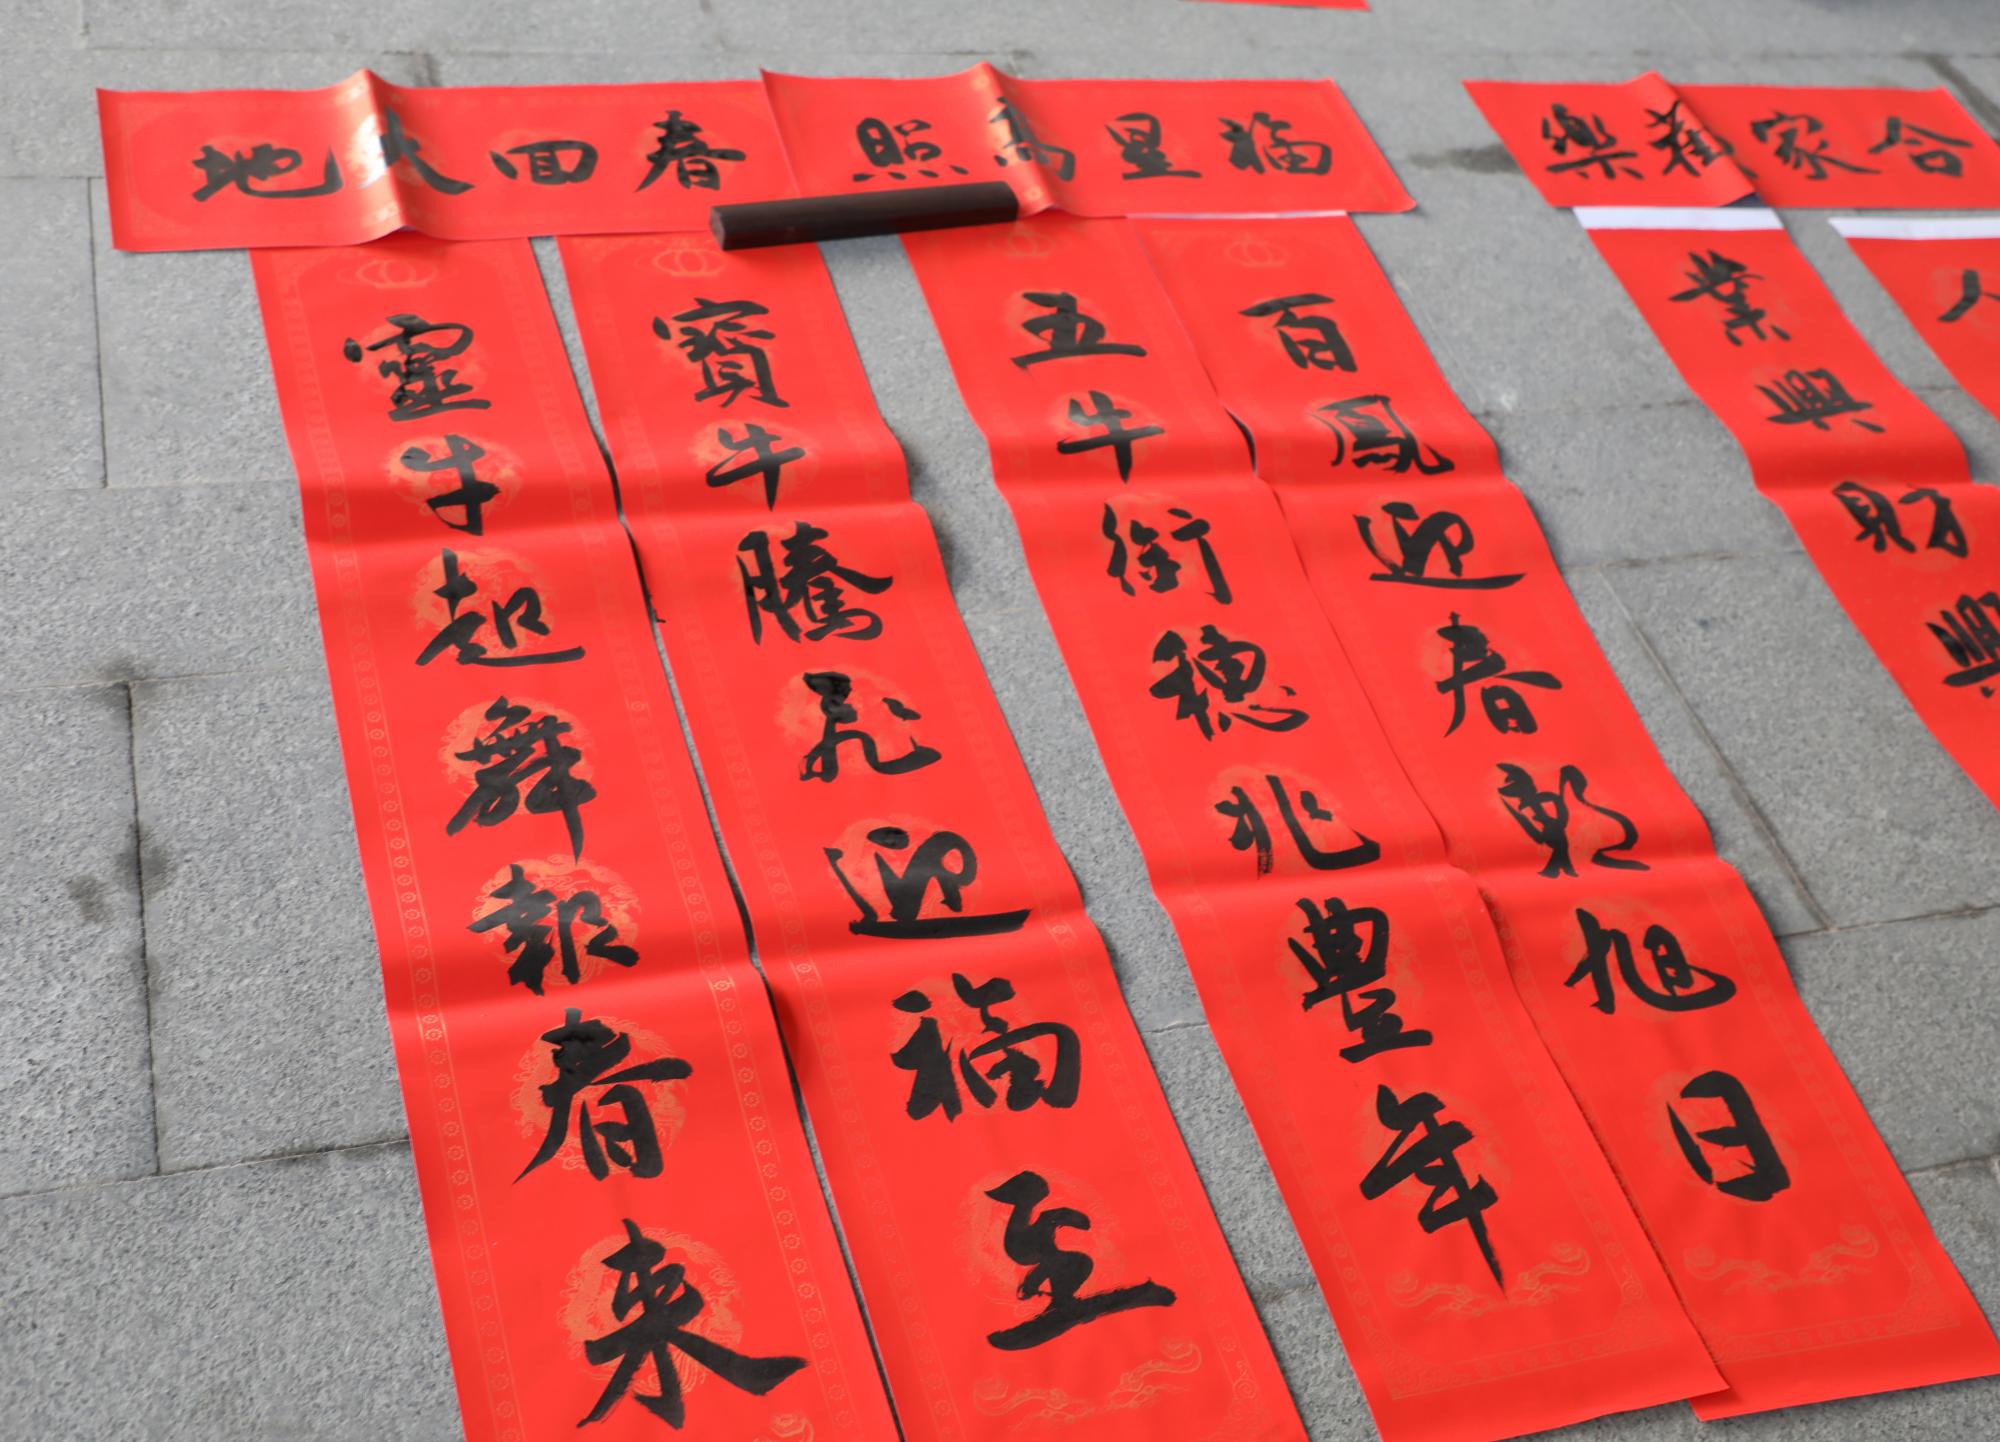 合家歡樂
人
業興財興
福星高照
百鳳迎春朝旭日
五牛銜穗兆豐年
春回大地
寶牛騰飛迎福至
靈牛起舞報春来